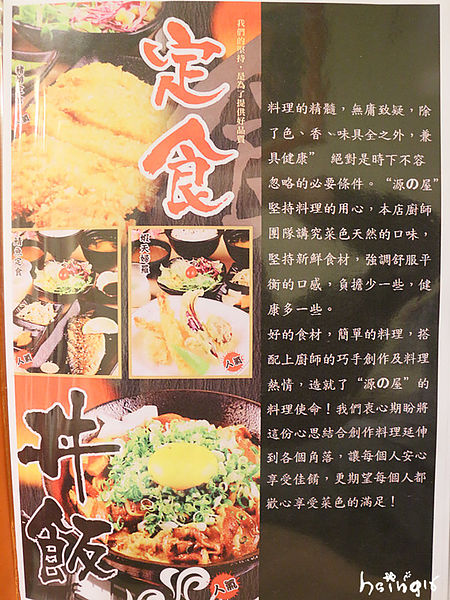 定食
我們的堅持，是為了提供好品質
鯖魚定食
蝦天婦羅
人氣
人氣
丼飯
人氣
料理的精髓，無庸致疑，除
了色、香、味具全之外，兼
具健康” 絕對是時下不容
忽略的必要條件。“源の屋”
堅持料理的用心，本店廚師
團隊講究菜色天然的口味，
堅持新鮮食材，強調舒服平
衡的口感，負擔少一些，健
康多一些。
好的食材，簡單的料理，搭
配上廚師的巧手創作及料理
熱情，造就了“源の屋”的
料理使命！我們衷心期盼將
這份心思結合創作料理延伸
到各個角落，讓每個人安心
享受佳餚，更期望每個人都
歡心享受菜色的滿足！